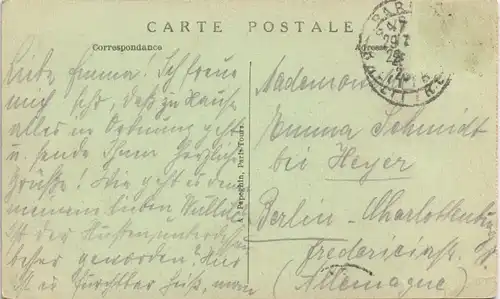 CARTE POSTALE
Correspondance
Adresse
Liebe Emma! Ich freue
mich sehr, daß zu Hause
alles in Ordnung geht
u. sende Ihnen herzliche
Grüße! Wie geht es denn
meinem lieben
Ist der Husten unterdessen
besser geworden? Hier
ist es furchtbar heiß, man
Papeghin, Paris-Tours
PARIS
Mademoiselle
Emma Schmidt
bei Heyer
Berlin-Charlottenburg
Fredericiastr.
(Allemagne)